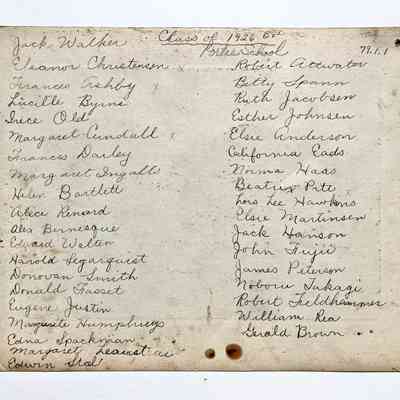 Class of 1926
School
79.1.1
Jack Walker
Eleanor Christensen
Frances Ashby
Lucille Byrne
Irece Old
Margaret Cundall
Frances Darley
Margaret Ingalls
Helen Bartlett
Alece Renard
Alex Bernesque
Edward Welton
Harold Segarquist
Donovan Smith
Donald Fasset
Eugene Justin
Marguerite Humphreys
Edna Spackman
Margaret
Edwin
Robert Attwater
Betty Spann
Ruth Jacobsen
Esther Johnsen
Elsie Anderson
California Eads
Norma Haas
Beatrix Pite
Lois Lee Hawkins
Elsie Martinsen
Jack Hanson
John Fujii
James Peterson
Noboru Takagi
Robert Fieldhammer
William Rea
Gerald Brown